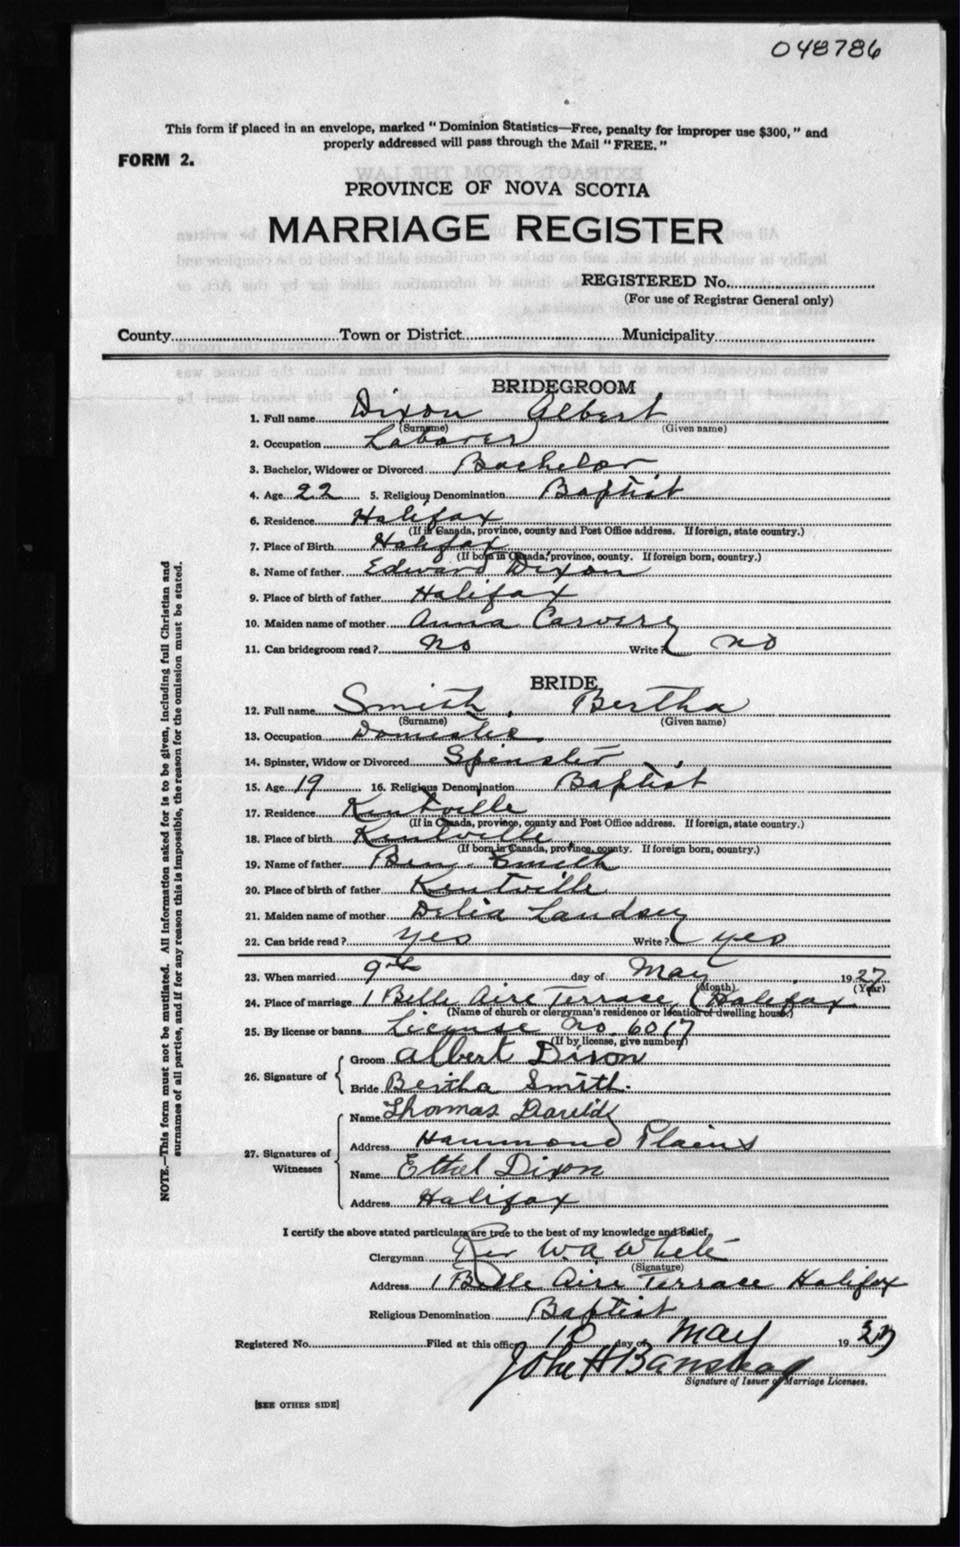 048786
This form if placed in an envelope, marked "Dominion Statistics—Free, penalty for improper use $300," and
properly addressed will pass through the Mail "FREE."
FORM 2.
PROVINCE OF NOVA SCOTIA
MARRIAGE REGISTER
REGISTERED No.
(For use of Registrar General only)
County Town or District Municipality
BRIDEGROOM
1. Full name Dixon Albert
(Surname) (Given name)
2. Occupation Laborer
3. Bachelor, Widower or Divorced Bachelor
4. Age 22 5. Religious Denomination Baptist
6. Residence Halifax
(If in Canada, province, county and Post Office address. If foreign, state country.)
7. Place of Birth Halifax
(If born in Canada, province, county. If foreign born, country.)
8. Name of father Edward Dixon
9. Place of birth of father Halifax
10. Maiden name of mother Anna Carvery
11. Can bridegroom read? No Write? no
BRIDE
12. Full name Smith Bertha
(Surname) (Given name)
13. Occupation Domestic
14. Spinster, Widow or Divorced Spinster
15. Age 19 16. Religious Denomination Baptist
17. Residence Kentville
(If in Canada, province, county and Post Office address. If foreign, state country.)
18. Place of birth Kentville
(If born in Canada, province, county. If foreign born, country.)
19. Name of father Ben Smith
20. Place of birth of father Kentville
21. Maiden name of mother Delia Landsey
22. Can bride read? yes Write? yes
23. When married 9th day of May 1927
(Month) (Year)
24. Place of marriage 1 Belle Aire Terrace, (Halifax
(Name of church or clergyman's residence or location of dwelling house.)
25. By license or banns License No. 6017
(If by license, give number)
26. Signature of
Groom Albert Dixon
Bride Bertha Smith.
27. Signatures of Witnesses
Name Thomas
Address Hammond Plains
Name Ethel Dixon
Address Halifax
I certify the above stated particulars are true to the best of my knowledge and belief.
Clergyman Rev W A White
(Signature)
Address 1 Belle Aire Terrace Halifax
Religious Denomination Baptist
Registered No. Filed at this office 10 day of May 1927
John H
Signature of Issuer of Marriage Licenses.
[SEE OTHER SIDE]
NOTE.—This form must not be mutilated. All information asked for is to be given, including full Christian and
surnames of all parties, and if for any reason this is impossible, the reason for the omission must be stated.